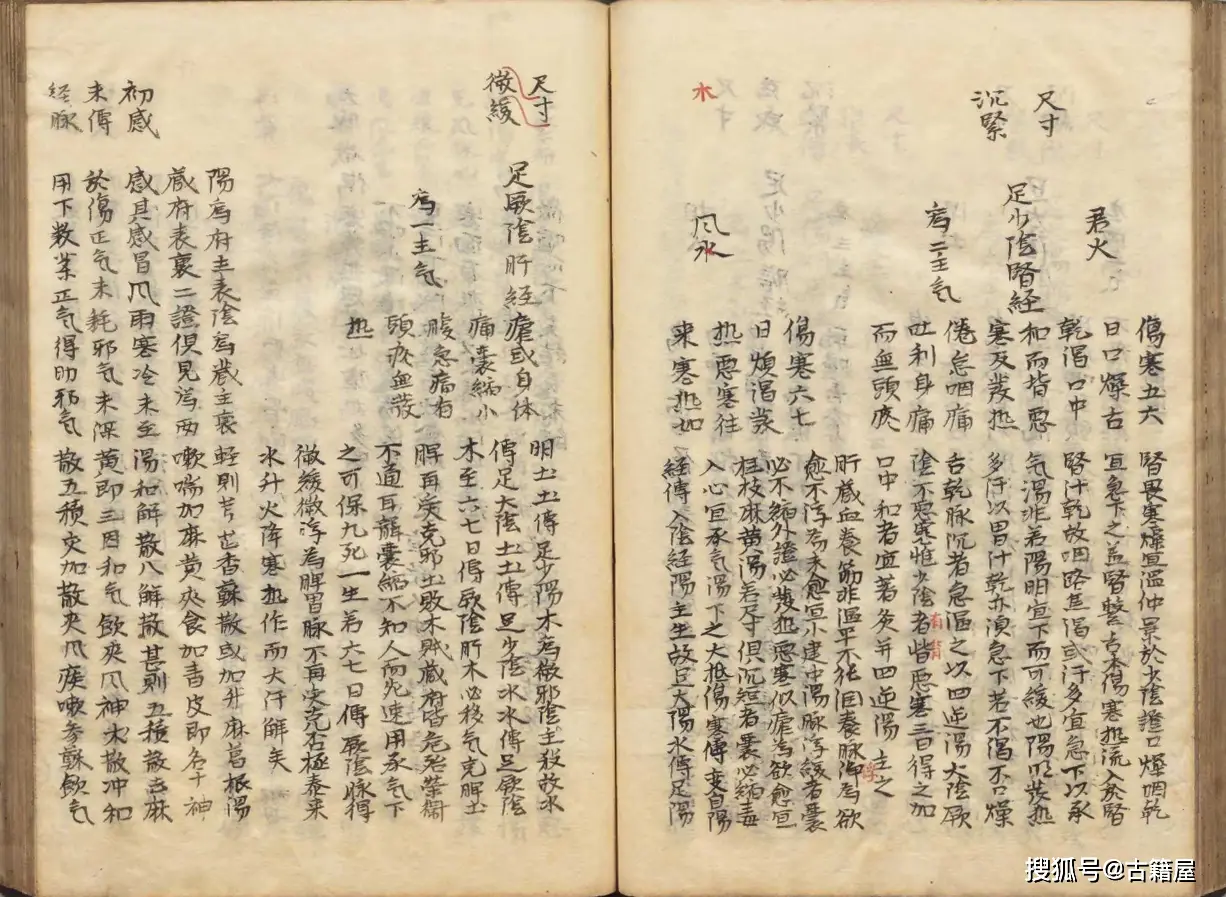 尺寸
沉緊
君火
足少陰腎經
為二主气
傷寒五六
日口燥舌
乾渴口中
和而背惡
寒反發热
倦怠咽痛
吐利身痛
而無頭疼
腎畏寒燥宜溫仲景於少陰證口燥咽乾
宜急下之盖腎繫舌本傷寒热流入於腎
腎汁乾故咽路焦渴或汗多宜急下以承
气湯非若陽明宜下而可緩也陽明發热
多汗以胃汁乾亦須急下若不渴不口燥
舌乾脉沉者急溫之以四逆湯大陰厥
陰不惡寒惟少陰者皆惡寒三日得之加
口中和者宜著灸并四逆湯主之
木
风木
傷寒六七
日煩渴發
热惡寒往
来寒热如
肝藏血養筋非溫平不能囬養脉浮為欲
愈不浮為未愈宜小建中湯脉浮緩者囊
必不縮外證必發热惡寒似瘧為欲愈宜
桂枝麻黄湯若尺寸俱沉短者囊必縮毒
入心宜承气湯下之大抵傷寒傳变自陽
經傳入陰經陽主生故足大陽水傳足陽
尺寸
微緩
足厥陰肝經
為一主气
瘧或身体
痛囊縮小
腹急痛有
頭疼無發
热
明土土傳足少陽木為微邪陰主殺故水
傳足大陰土土傳足少陰水水傳足厥陰
木至六七日得厥陰肝木必移气克脾土
脾再受克邪土敗木賊藏府皆危殆榮衛
不通耳聾囊縮不知人而死速用承气下
之可保九死一生若六七日傳厥陰脉得
微緩微浮為脾胃脉不再受克否極泰来
水升火降寒热作而大汗解矣
初感
未傳
経脉
陽為府主表陰為藏主裏
藏府表裏二證俱見瀉而
感其感冒风雨寒冷未至
於傷正气未耗邪气未深
用下数藥正气得助邪气
輕則芎芷香蘇散或加升麻葛根湯
嗽喘加麻黄夾食加青皮即名十神
湯和解散八解散甚則五積散去麻
黄即三因和气飲夾风神朮散冲和
散五積交加散夾风痰嗽参蘇飲气
搜狐号@古籍屋